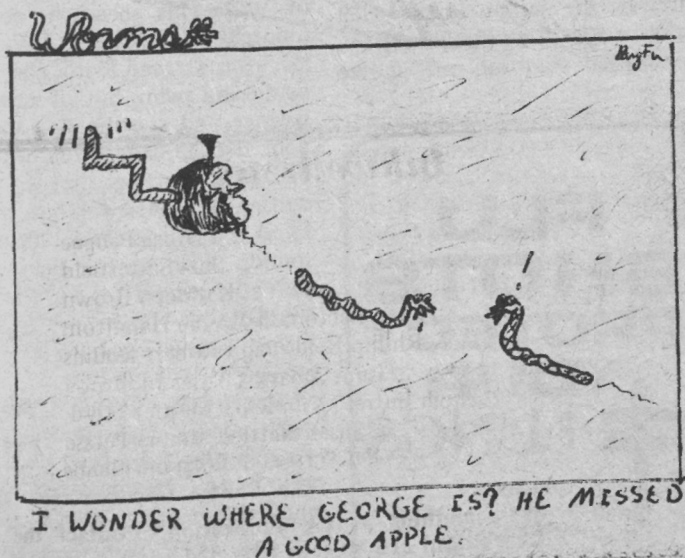 Worms
I WONDER WHERE GEORGE IS? HE MISSED
A GOOD APPLE.